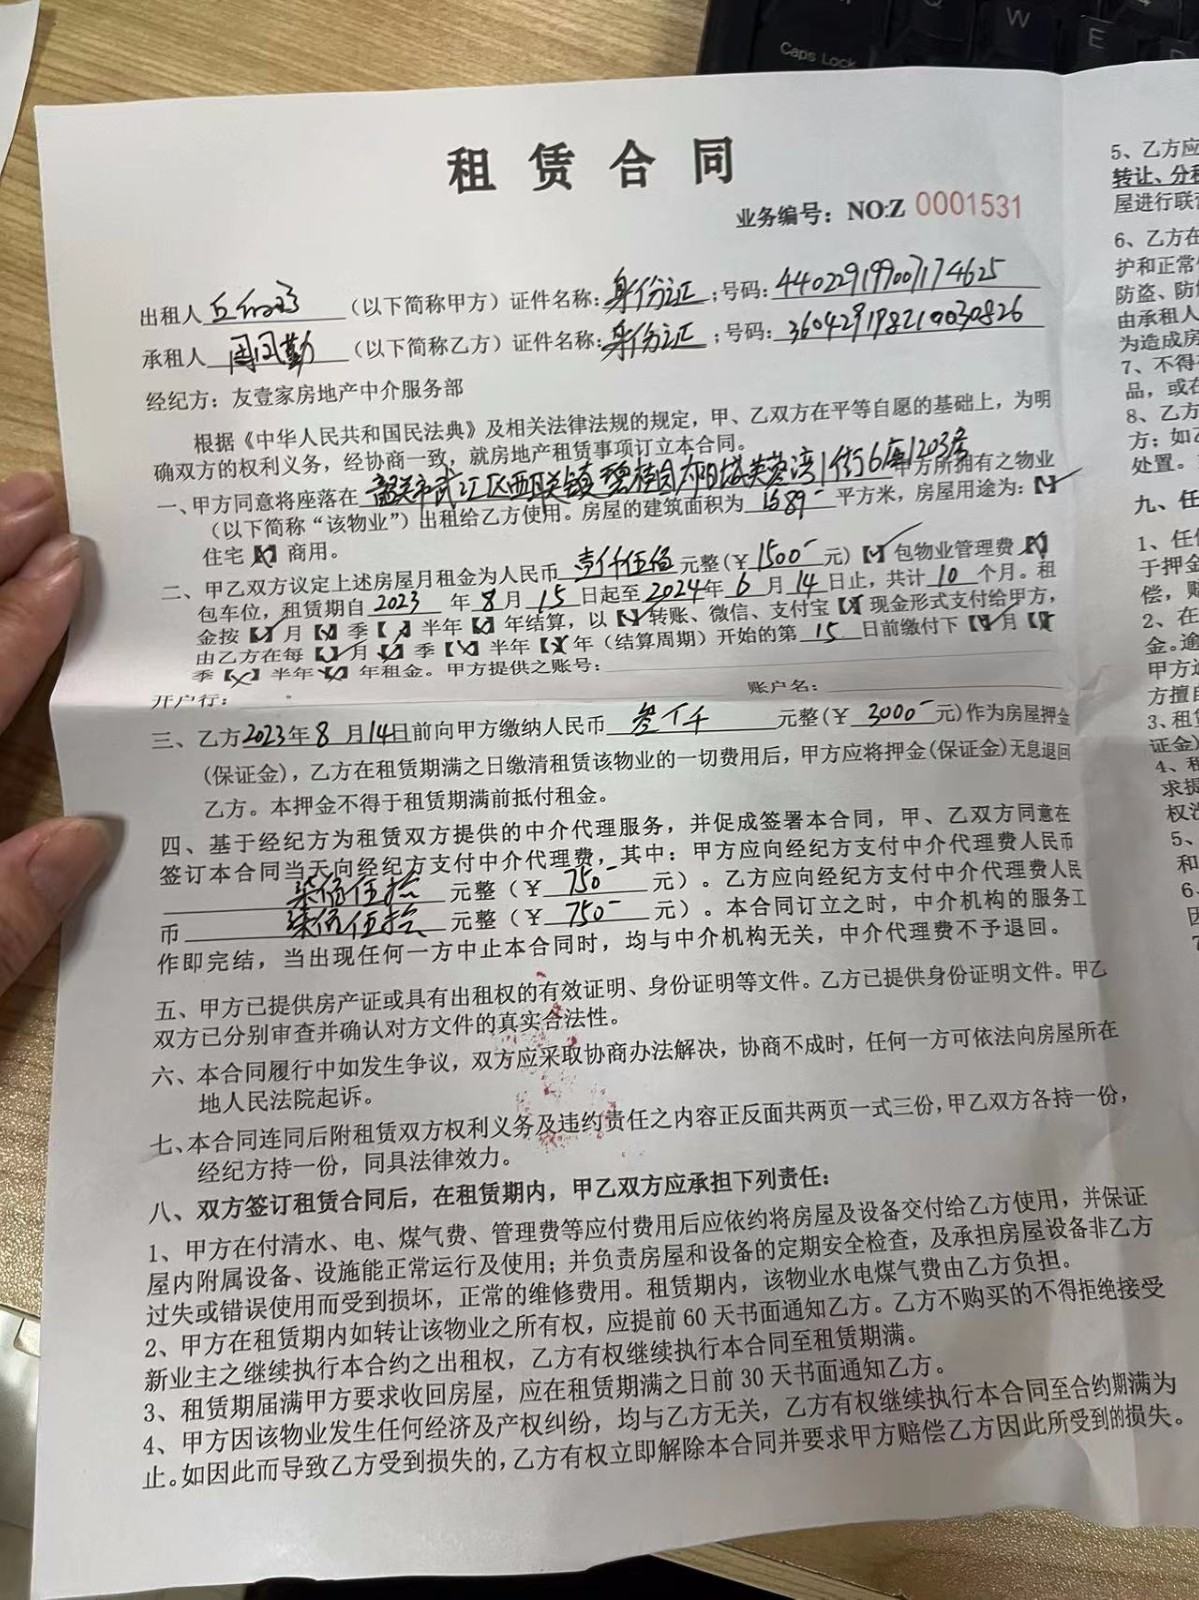 Caps Lock
Q
W
E
租赁合同
业务编号：NO:Z 0001531
出租人 （以下简称甲方）证件名称：身份证；号码：440229199007174625
承租人 （以下简称乙方）证件名称：身份证；号码：
经纪方：友壹家房地产中介服务部
根据《中华人民共和国民法典》及相关法律法规的规定，甲、乙双方在平等自愿的基础上，为明
确双方的权利义务，经协商一致，就房地产租赁事项订立本合同。
一、甲方同意将座落在 韶关市武江区西联镇碧桂园太阳城芙蓉湾1街6座1203号 甲方所拥有之物业
（以下简称“该物业”）出租给乙方使用。房屋的建筑面积为 平方米，房屋用途为：【✓】
住宅【×】商用。
二、甲乙双方议定上述房屋月租金为人民币 壹仟伍佰 元整(￥ 1500- 元)【✓】包物业管理费【×】
包车位，租赁期自 2023 年 8 月 15 日起至 2024 年 6 月 14 日止，共计 10 个月。租
金按【✓】月【×】季【 】半年【×】年结算，以【✓】转账、微信、支付宝【×】现金形式支付给甲方，
由乙方在每【✓】月【×】季【×】半年【×】年（结算周期）开始的第 15 日前缴付下【✓】月【×】
季【×】半年【×】年租金。甲方提供之账号：
开户行： 账户名：
三、乙方2023年 8 月14日前向甲方缴纳人民币 叁仟 元整(￥ 3000- 元)作为房屋押金
(保证金)，乙方在租赁期满之日缴清租赁该物业的一切费用后，甲方应将押金(保证金)无息退回
乙方。本押金不得于租赁期满前抵付租金。
四、基于经纪方为租赁双方提供的中介代理服务，并促成签署本合同，甲、乙双方同意在
签订本合同当天向经纪方支付中介代理费，其中：甲方应向经纪方支付中介代理费人民币
柒佰伍拾 元整（￥ 750- 元）。乙方应向经纪方支付中介代理费人民
币 柒佰伍拾 元整（￥ 750- 元）。本合同订立之时，中介机构的服务工
作即完结，当出现任何一方中止本合同时，均与中介机构无关，中介代理费不予退回。
五、甲方已提供房产证或具有出租权的有效证明、身份证明等文件。乙方已提供身份证明文件。甲乙
双方已分别审查并确认对方文件的真实合法性。
六、本合同履行中如发生争议，双方应采取协商办法解决，协商不成时，任何一方可依法向房屋所在
地人民法院起诉。
七、本合同连同后附租赁双方权利义务及违约责任之内容正反面共两页一式三份，甲乙双方各持一份，
经纪方持一份，同具法律效力。
八、双方签订租赁合同后，在租赁期内，甲乙双方应承担下列责任：
1、甲方在付清水、电、煤气费、管理费等应付费用后应依约将房屋及设备交付给乙方使用，并保证
屋内附属设备、设施能正常运行及使用；并负责房屋和设备的定期安全检查，及承担房屋设备非乙方
过失或错误使用而受到损坏，正常的维修费用。租赁期内，该物业水电煤气费由乙方负担。
2、甲方在租赁期内如转让该物业之所有权，应提前 60 天书面通知乙方。乙方不购买的不得拒绝接受
新业主之继续执行本合约之出租权，乙方有权继续执行本合同至租赁期满。
3、租赁期届满甲方要求收回房屋，应在租赁期满之日前 30 天书面通知乙方。
4、甲方因该物业发生任何经济及产权纠纷，均与乙方无关，乙方有权继续执行本合同至合约期满为
止。如因此而导致乙方受到损失的，乙方有权立即解除本合同并要求甲方赔偿乙方因此所受到的损失。
5、乙方应
转让、分租
屋进行联
6、乙方在
护和正常
防盗、防
由承租人
为造成房
7、不得
品，或在
8、乙方
方；如乙
处置。
九、任
1、任
于押金
偿，
2、在
金。逾
甲方
方擅自
3、租
证金)
4、
求提
权
5、
和
6、
因
7